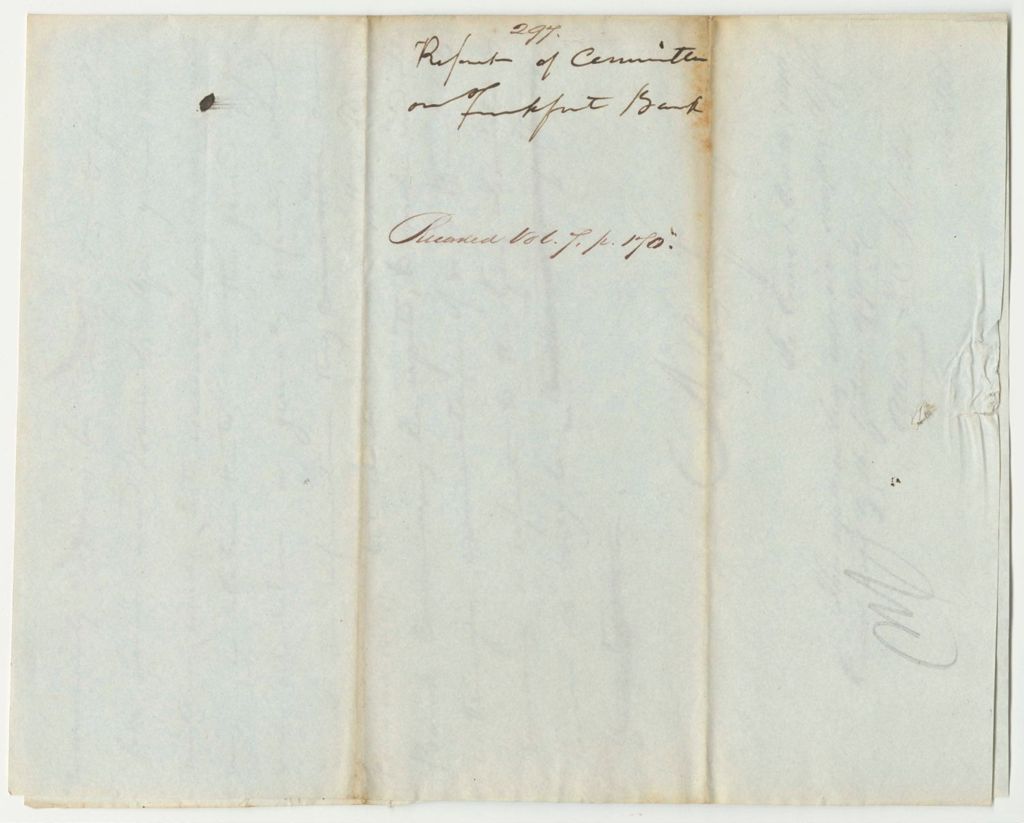 297.
Report of Committee
on Frankfort Bank
Recorded Vol. 7, p. 175.